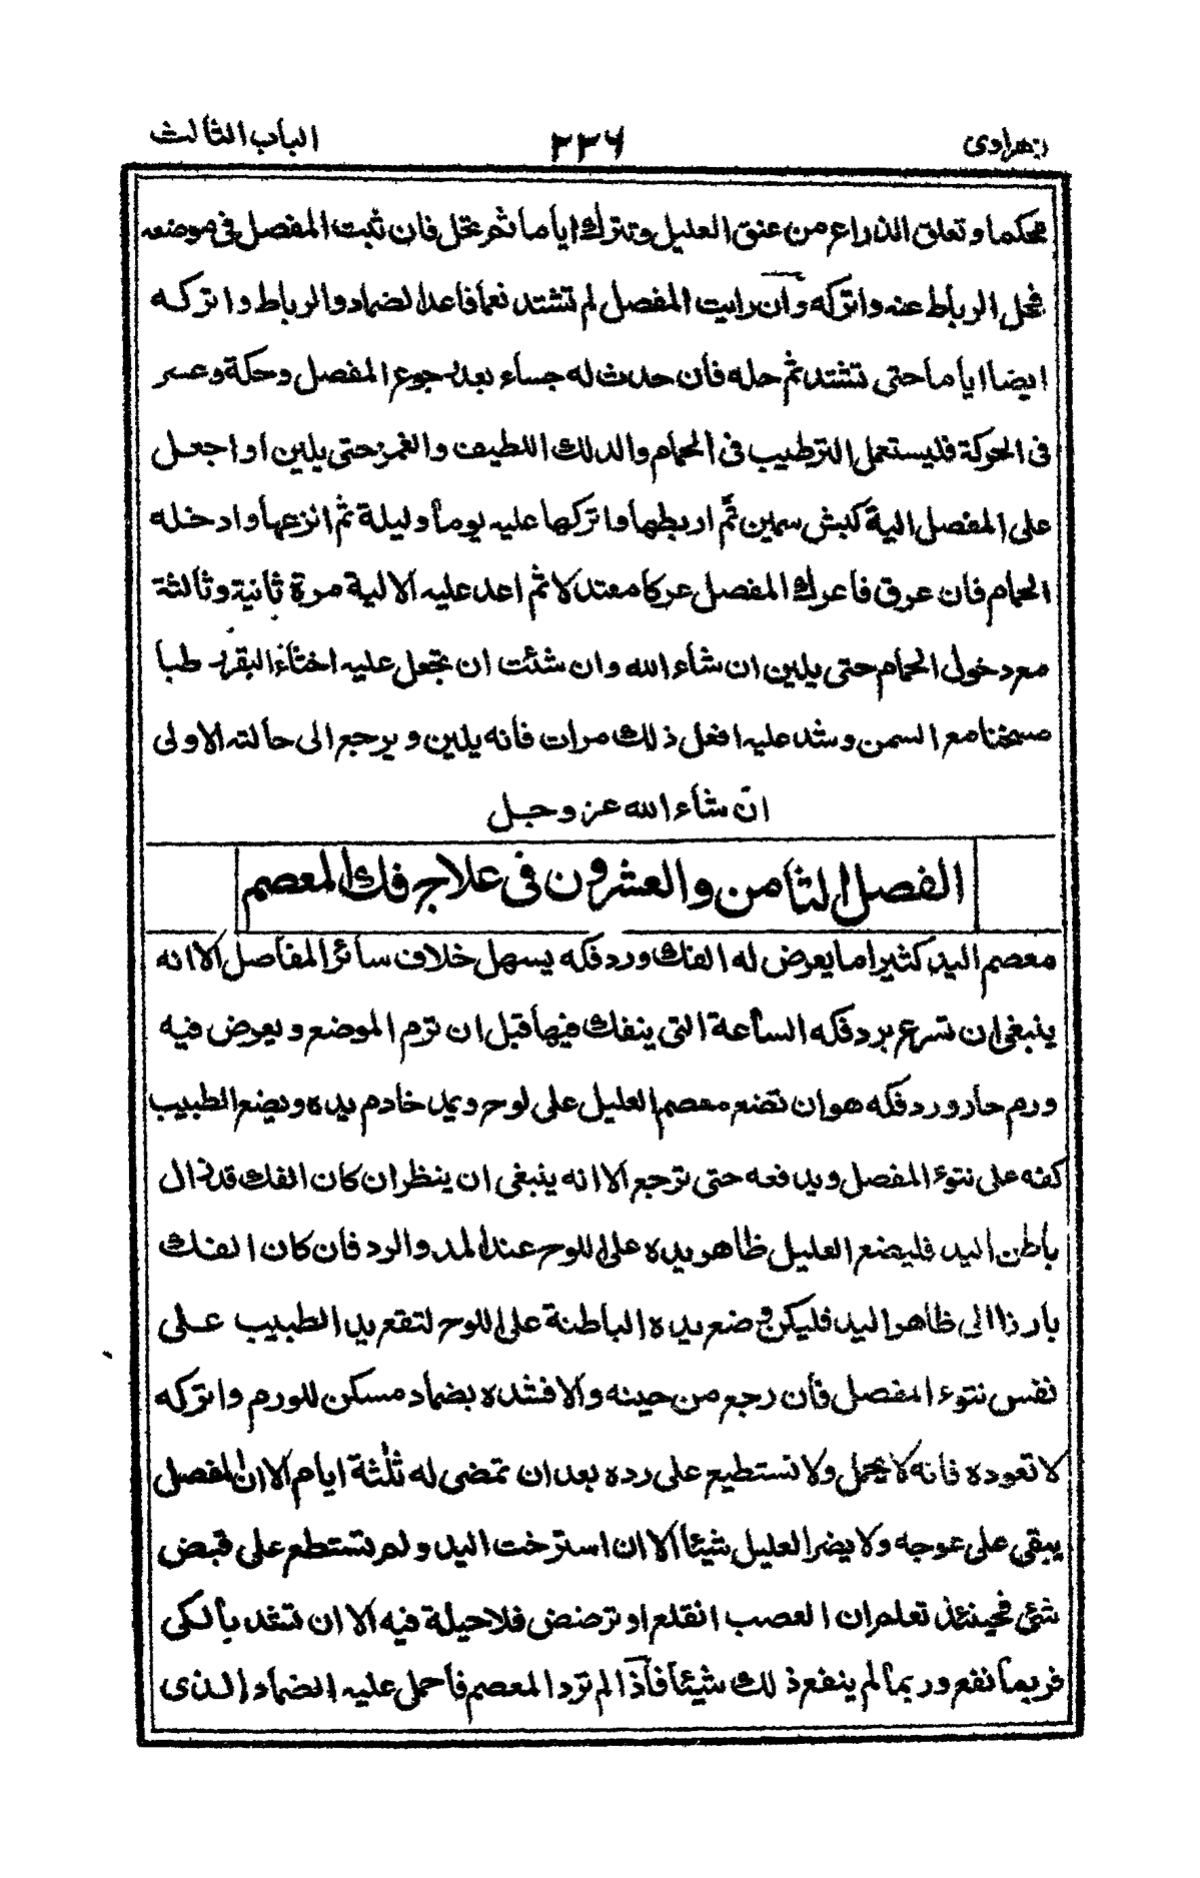 زهراوى ٢٢٦ الباب الثالث
محكما وتعلق الذراع من عنق العليل وتترك اياما ثم تحل فان ثبت المفصل فى موضعه
فحل الرباط عنه واتركه وان رايت المفصل لم تشتد نعما فاعد الضماد والرباط واتركه
ايضا اياما حتى تشتد ثم حله فان حدث له جساء بعد رجوع المفصل وحكة وعسر
فى الحركة فليستعمل الترطيب فى الحمام والدلك اللطيف والغمز حتى يلين او اجعل
على المفصل الية كبش سمين ثم اربطها واتركها عليه يوما وليلة ثم انزعها وادخله
الحمام فان عرق فاعرك المفصل عركا معتدلا ثم اعد عليه الالية مرة ثانية وثالثة
مع دخول الحمام حتى يلين ان شاء الله وان شئت ان تجعل عليه اخثاء البقر رطبا
مسخنا مع السمن وشد عليه افعل ذلك مرات فانه يلين ويرجع الى حالته الاولى
ان شاء الله عز وجل
الفصل الثامن والعشرون فى علاج فك المعصم
معصم اليد كثيرا ما يعرض له الفك ورد فكه يسهل خلاف سائر المفاصل الا انه
ينبغى ان تسرع برد فكه الساعة التى ينفك فيها قبل ان ترم الموضع ويعرض فيه
ورم حار ورد فكه هو ان تضع معصم العليل على لوح ويمد خادم يده ويضع الطبيب
كفه على نتوء المفصل ويدفعه حتى ترجع الا انه ينبغى ان ينظر ان كان الفك قد زال
باطن اليد فليضع العليل ظاهر يده على اللوح عند المد والرد فان كان الفك
بارزا الى ظاهر اليد فليكن وضع يده الباطنة على اللوح لتقع يد الطبيب على
نفس نتوء المفصل فان رجع من حينه والا فشده بضماد مسكن للورم واتركه
لا تعوده فانه لا يحمل ولا تستطيع على رده بعد ان تمضى له ثلثة ايام الا ان المفصل
يبقى على عوجه ولا يضر العليل شيئا الا ان استرخت اليد ولم تستطع على قبض
شئ فحينئذ تعلم ان العصب انقلع او ترضض فلا حيلة فيه الا ان تشد بالكى
فربما نفع وربما لم ينفع ذلك شيئا فاذا لم ترد المعصم فاحمل عليه الضماد الذى